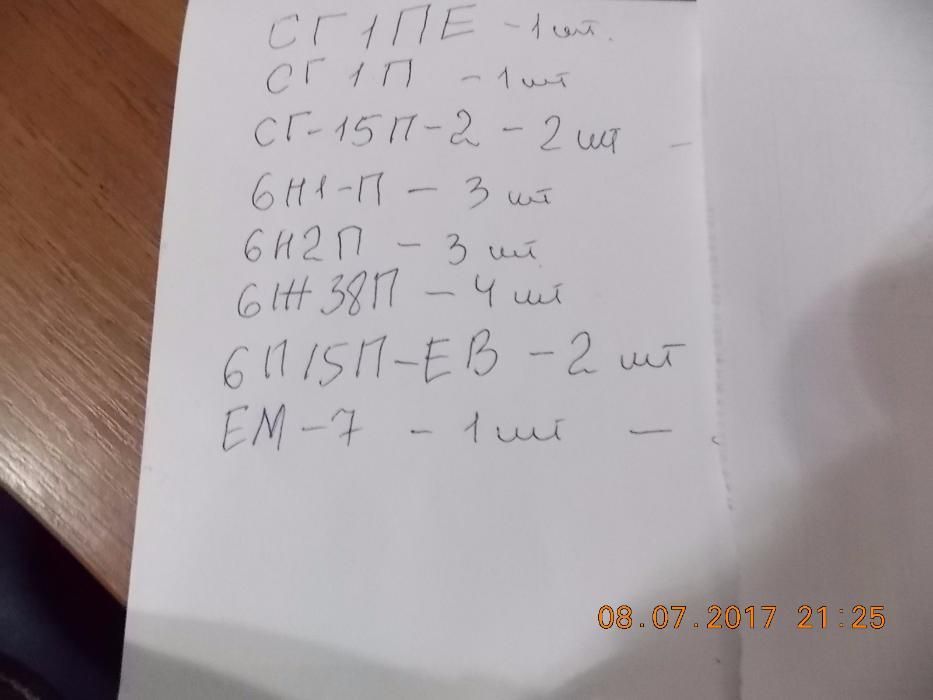 СГ 1ПЕ - 1 шт.
СГ 1П - 1 шт
СГ-15П-2 - 2 шт -
6Н1-П - 3 шт
6Н2П - 3 шт.
6Ж38П - 4 шт
6П15П-ЕВ - 2 шт
ЕМ-7 - 1 шт -
08.07.2017 21:25